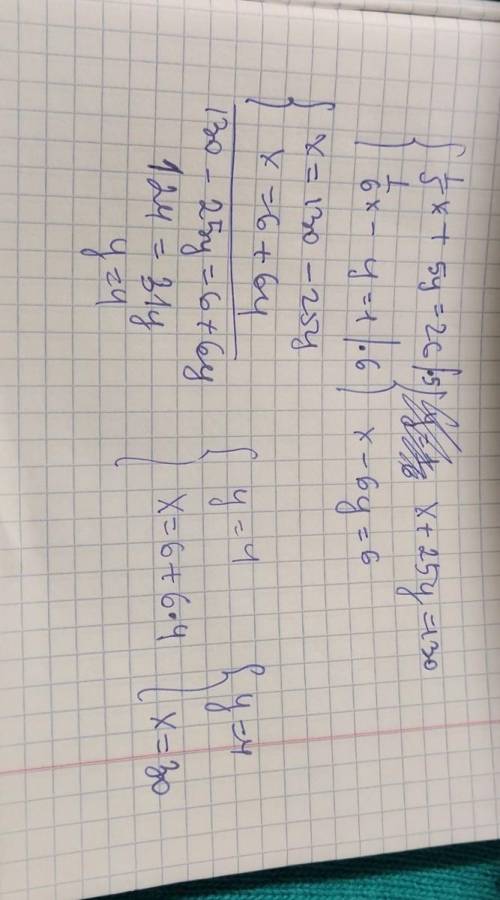 { 1/5 x + 5y = 26 |·5 { x + 25y = 130
{ 1/6 x - y = 1 |·6 { x - 6y = 6
{ x = 130 - 25y
{ x = 6 + 6y
130 - 25y = 6 + 6y
124 = 31y
y = 4
{ y = 4
{ x = 6 + 6·4
{ y = 4
{ x = 30